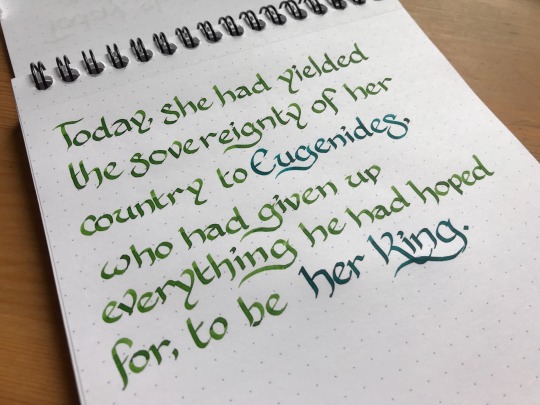 Today, she had yielded
the sovereignty of her
country to Eugenides,
who had given up
everything he had hoped
for, to be her King.